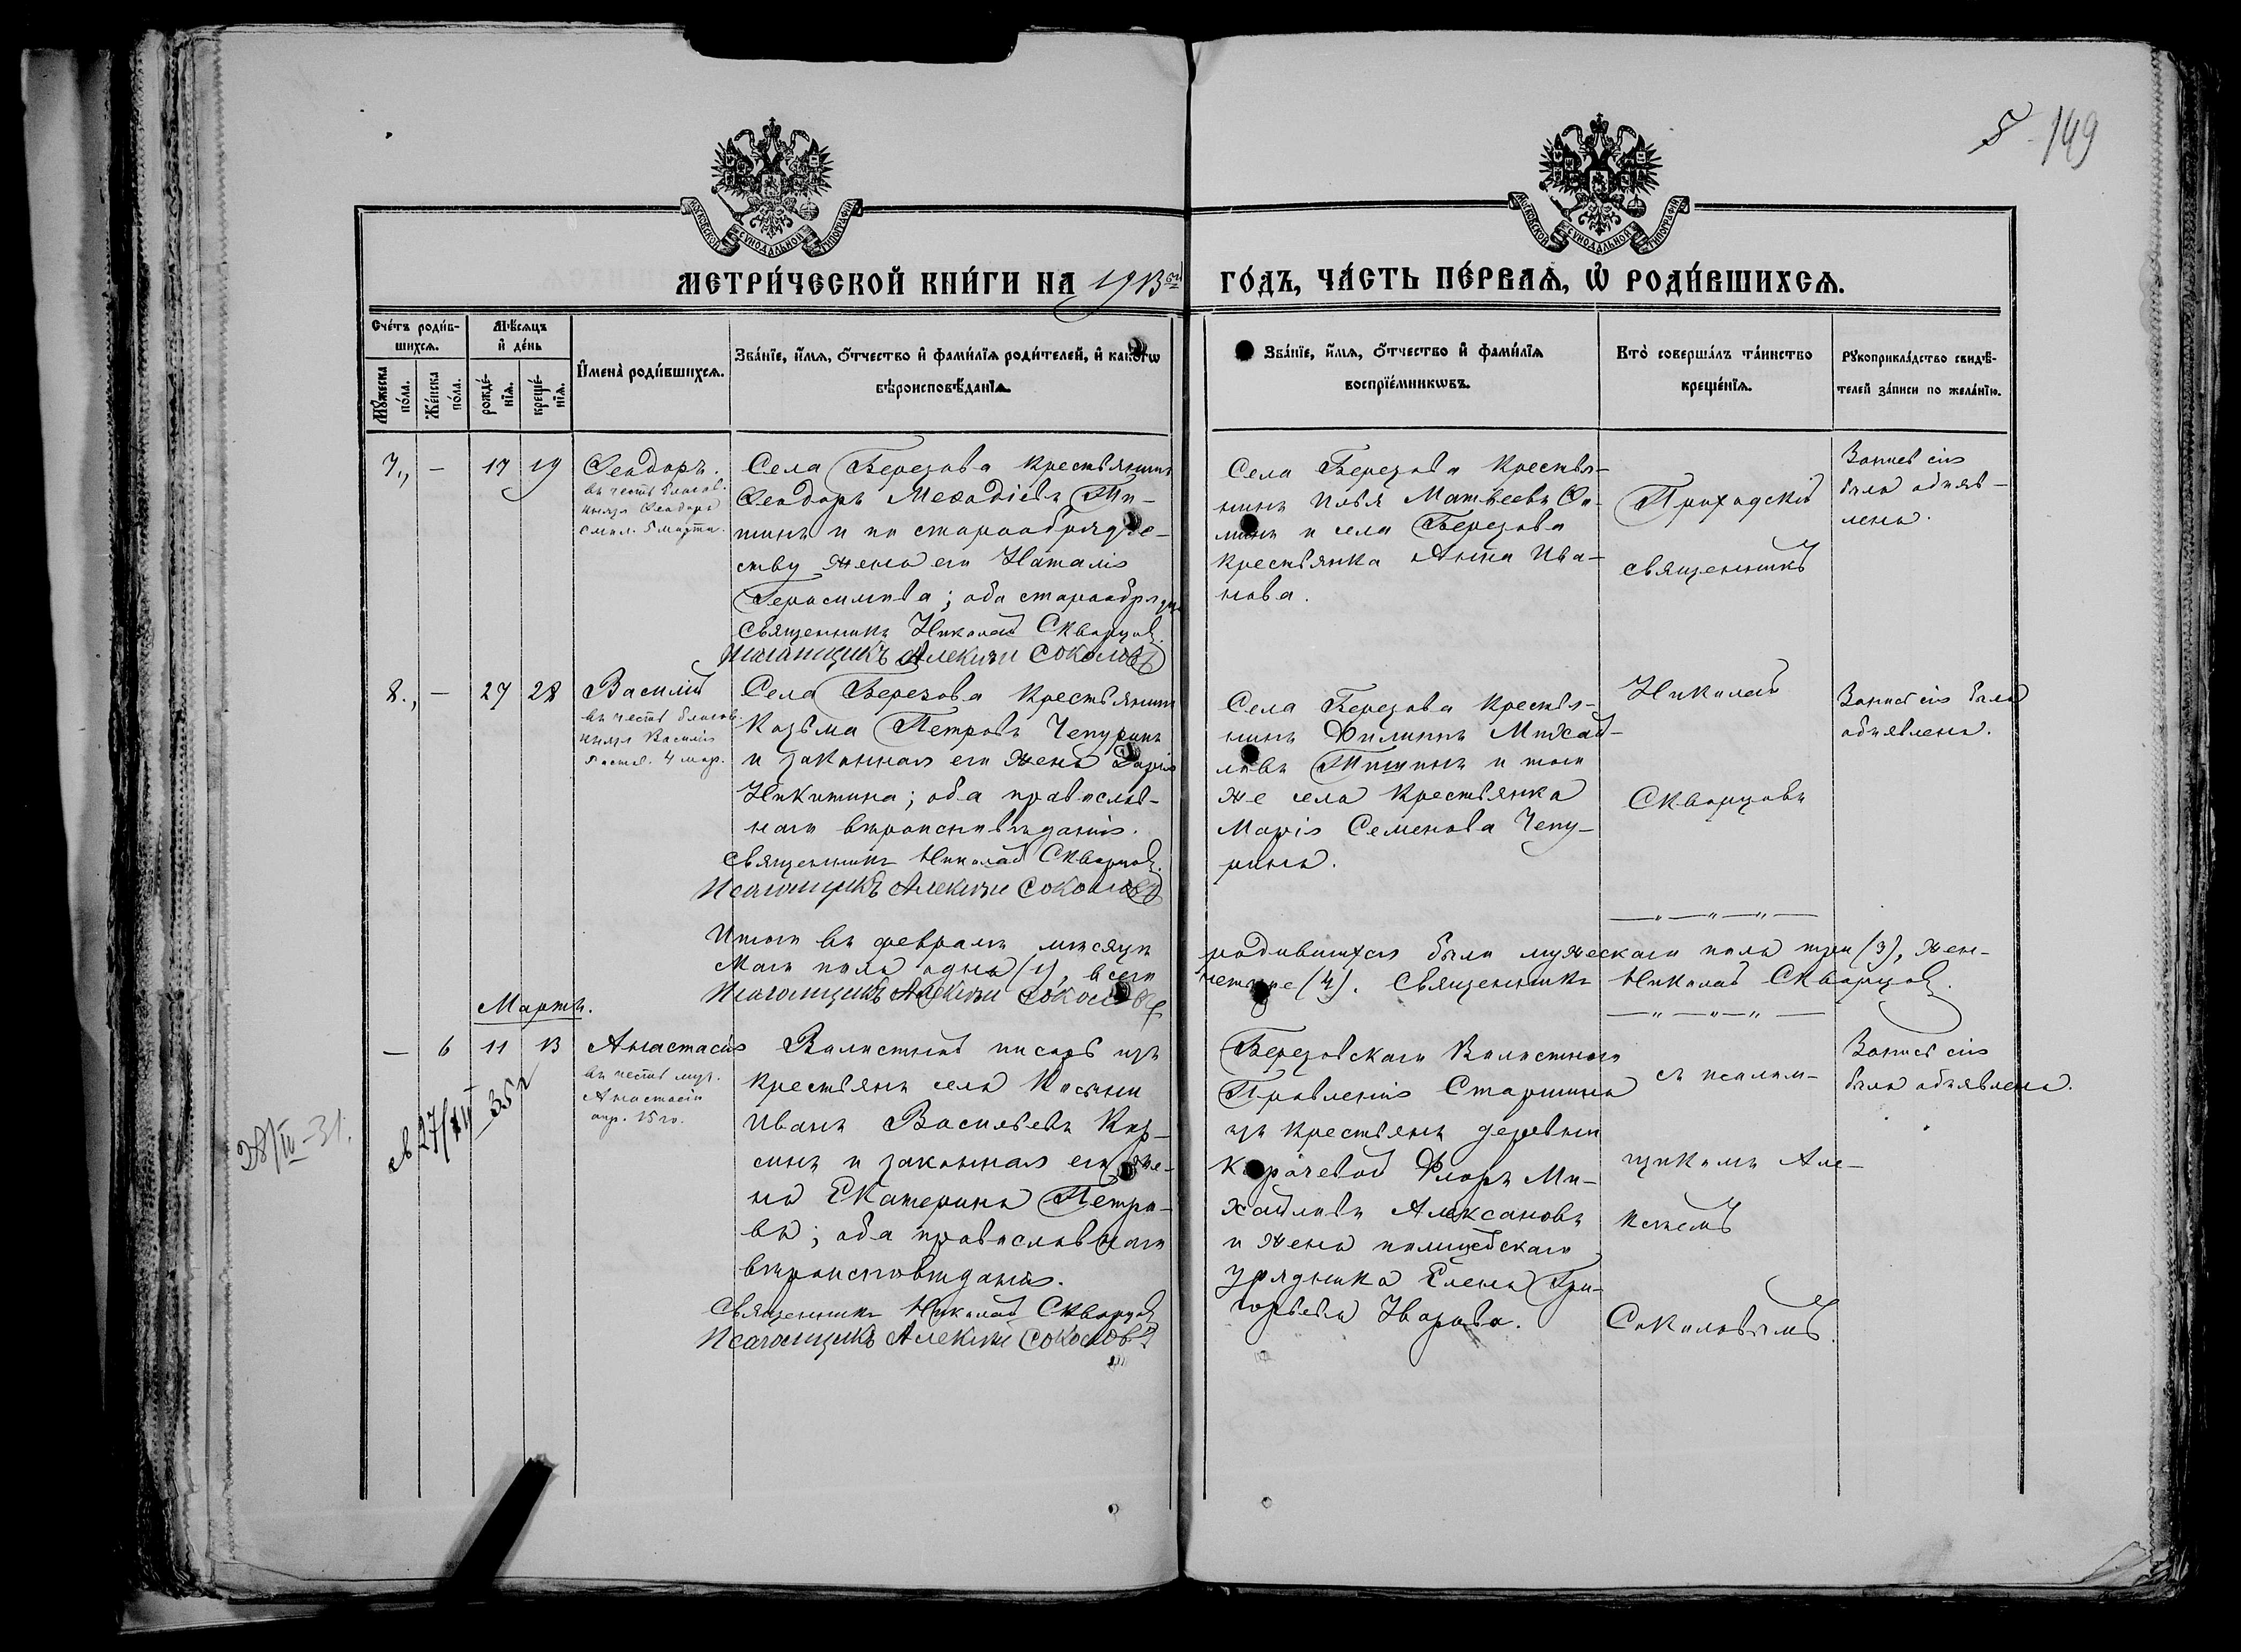 5 - 149
МОСКОВСКОЙ СУНОДАЛЬНОЙ ТИПОГРАФІИ
МОСКОВСКОЙ СУНОДАЛЬНОЙ ТИПОГРАФІИ
МЕТРИ́ЧЕСКОЙ КНИ́ГИ НА 1913ый ГО́ДЪ, ЧА́СТЬ ПЕ́РВАѦ, Ѡ҆ РОДИ́ВШИХСѦ.
Сче́тъ роди́в-
шихсѧ.
Мꙋ́жеска по́ла.
Же́нска по́ла.
Мѣ́сѧцъ
и҆ де́нь
рожде́-
нїѧ.
креще́-
нїѧ.
И҆мена̀ роди́вшихсѧ.
Зва́нїе, и҆́мѧ, ѻ҆́тчество и҆ фамѝлїѧ роди́телей, и҆ како́гѡ
вѣроисповѣ́данїѧ.
Зва́нїе, и҆́мѧ, ѻ҆́тчество и҆ фамѝлїѧ
воспрїе́мникѡвъ.
Кто̀ соверша́лъ та́инство
креще́нїѧ.
Рꙋкоприкла́дство свидѣ́-
телей за́писи по жела́нїю.
7., — 17 19
Ѳеодоръ.
въ честь благов.
князя Ѳеодора
смол. 5 марта.
Села Березова крестьянинъ
Ѳеодоръ Меѳодіевъ Ти-
шинъ и по старообрядче-
ству жена его Наталія
Герасимова; оба старообрядцы
Священникъ Николай Скворцовъ.
Псаломщикъ Алексѣй Соколовъ
Села Березова крестья-
нинъ Илья Матвеевъ Ѳо-
минъ и села Березова
крестьянка Анна Ива-
нова.
Приходскій
священникъ
Запись сія
была объяв-
лена.
8., — 27 28
Василій
въ честь благов.
князя Василія
Ростов. 4 мар.
Села Березова крестьянинъ
Козьма Петровъ Чепуринъ
и законная его жена Дарія
Никитина; оба православ-
наго вѣроисповѣданія.
Священникъ Николай Скворцовъ.
Псаломщикъ Алексѣй Соколовъ
Села Березова крестья-
нинъ Филиппъ Михай-
ловъ Тишинъ и того
же села крестьянка
Марія Семенова Чепу-
рина.
Николай
Скворцовъ
Запись сія была
объявлена.
Итого въ февралѣ мѣсяцѣ родившихся было мужескаго пола три (3), жен-
скаго пола одна (1), всего четыре (4). Священникъ Николай Скворцовъ.
Псаломщикъ Алексѣй Соколовъ
Мартъ.
— 6 11 13
Анастасія
въ честь муч.
Анастасіи
апр. 15 го.
Волостной писарь изъ
крестьянъ села
Иванъ Васильевъ Кир-
синъ и законная его же-
на Екатерина Петро-
ва; оба православнаго
вѣроисповѣданія.
Священникъ Николай Скворцовъ
Псаломщикъ Алексѣй Соколовъ
Березовскаго Волостного
Правленія Старшина
изъ крестьянъ деревни
Карачевой Флоръ Ми-
хайловъ Алексановъ
и жена полицейскаго
урядника Елена Гри-
горьева Уварова.
съ псалом-
щикомъ Але-
ксѣемъ
Соколовымъ.
Запись сія
была объявлена.
28/IV-31.